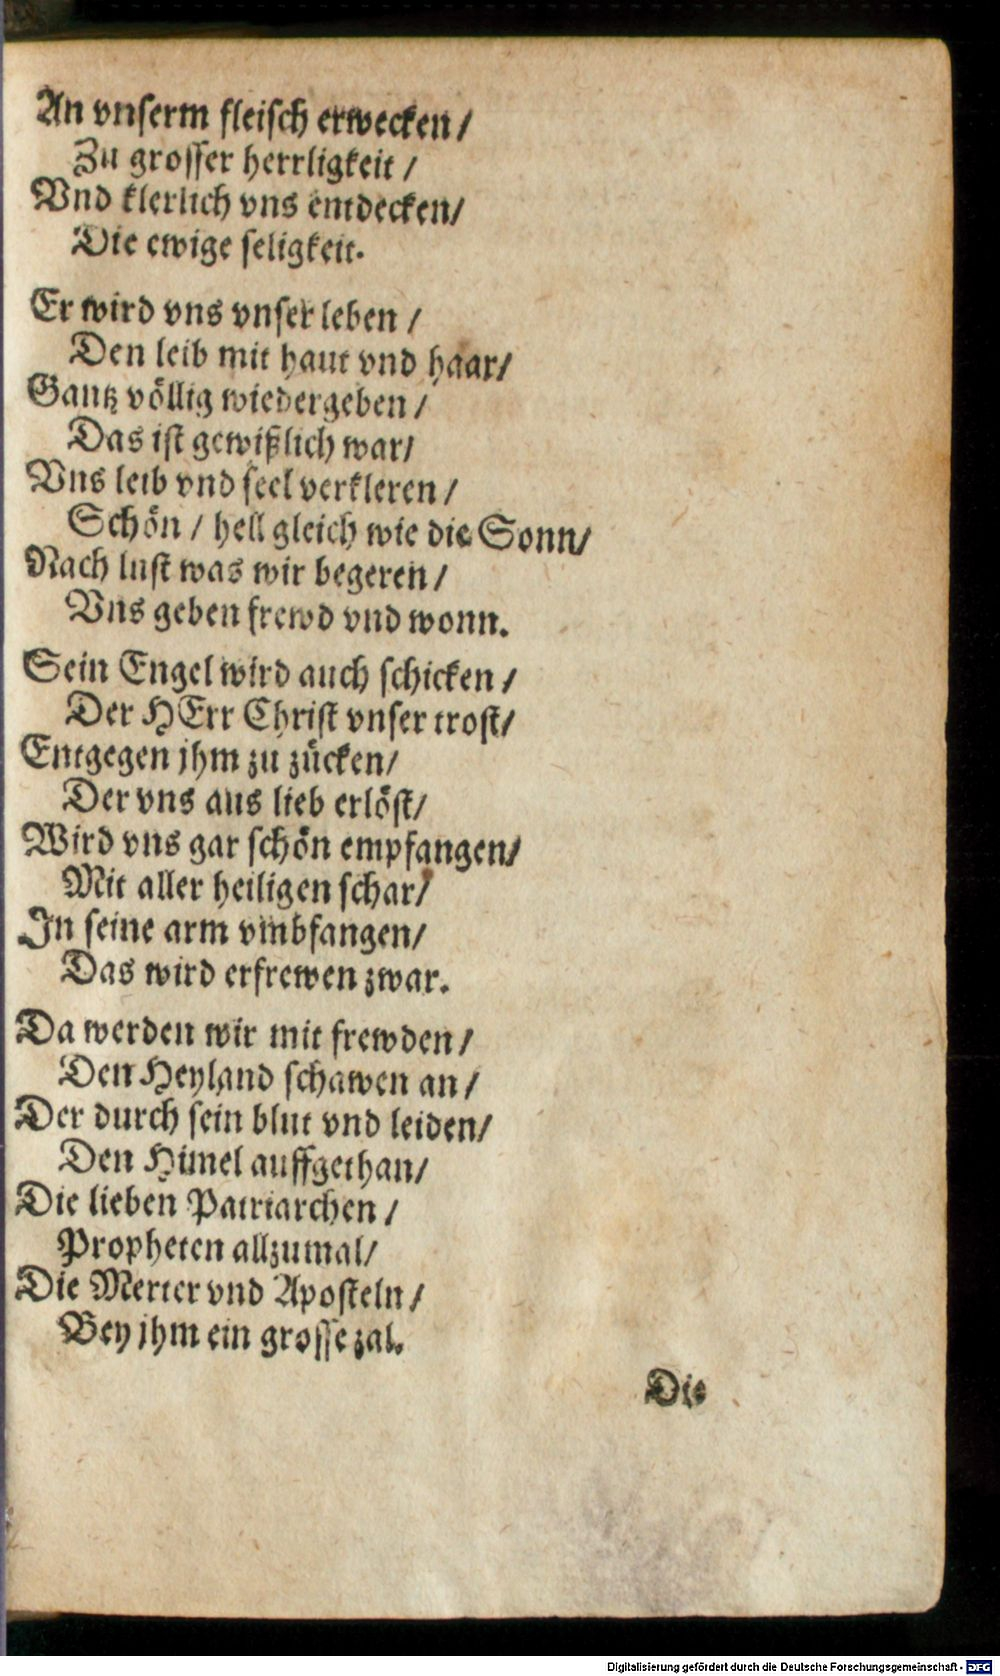 An vnserm fleisch erwecken/
Zu grosser herrligkeit/
Vnd klerlich vns entdecken/
Die ewige seligkeit.
Er wird vns vnser leben/
Den leib mit haut vnd haar/
Gantz völlig wiedergeben/
Das ist gewißlich war/
Vns leib vnd seel verkleren/
Schön/ hell gleich wie die Sonn/
Nach lust was wir begeren/
Vns geben frewd vnd wonn.
Sein Engel wird auch schicken/
Der HErr Christ vnser trost/
Entgegen jhm zu zücken/
Der vns aus lieb erlöst/
Wird vns gar schön empfangen/
Mit aller heiligen schar/
In seine arm vmbfangen/
Das wird erfrewen zwar.
Da werden wir mit frewden/
Den Heyland schawen an/
Der durch sein blut vnd leiden/
Den Himel auffgethan/
Die lieben Patriarchen/
Propheten allzumal/
Die Merter vnd Aposteln/
Bey jhm ein grosse zal.
Die
Digitalisierung gefördert durch die Deutsche Forschungsgemeinschaft - DFG